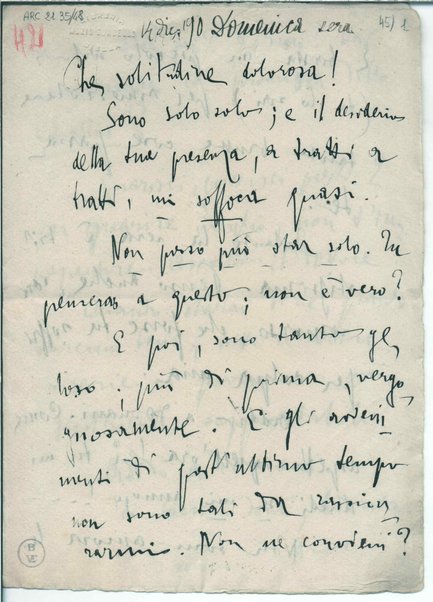 ARC 21 35/48
421
14 dic. '90 Domenica sera
45/1
Che solitudine dolorosa!
Sono solo solo; e il desiderio
della tua presenza, a tratti a
tratti, mi soffoca quasi.
Non posso più star solo. Tu
penserai a questo; non è vero?
E poi, sono tanto ge
loso, più di prima, vergo
gnosamente. E gli avveni
menti di quest'ultimo tempo
non sono tali da rassicu
rarmi. Non ne convieni?